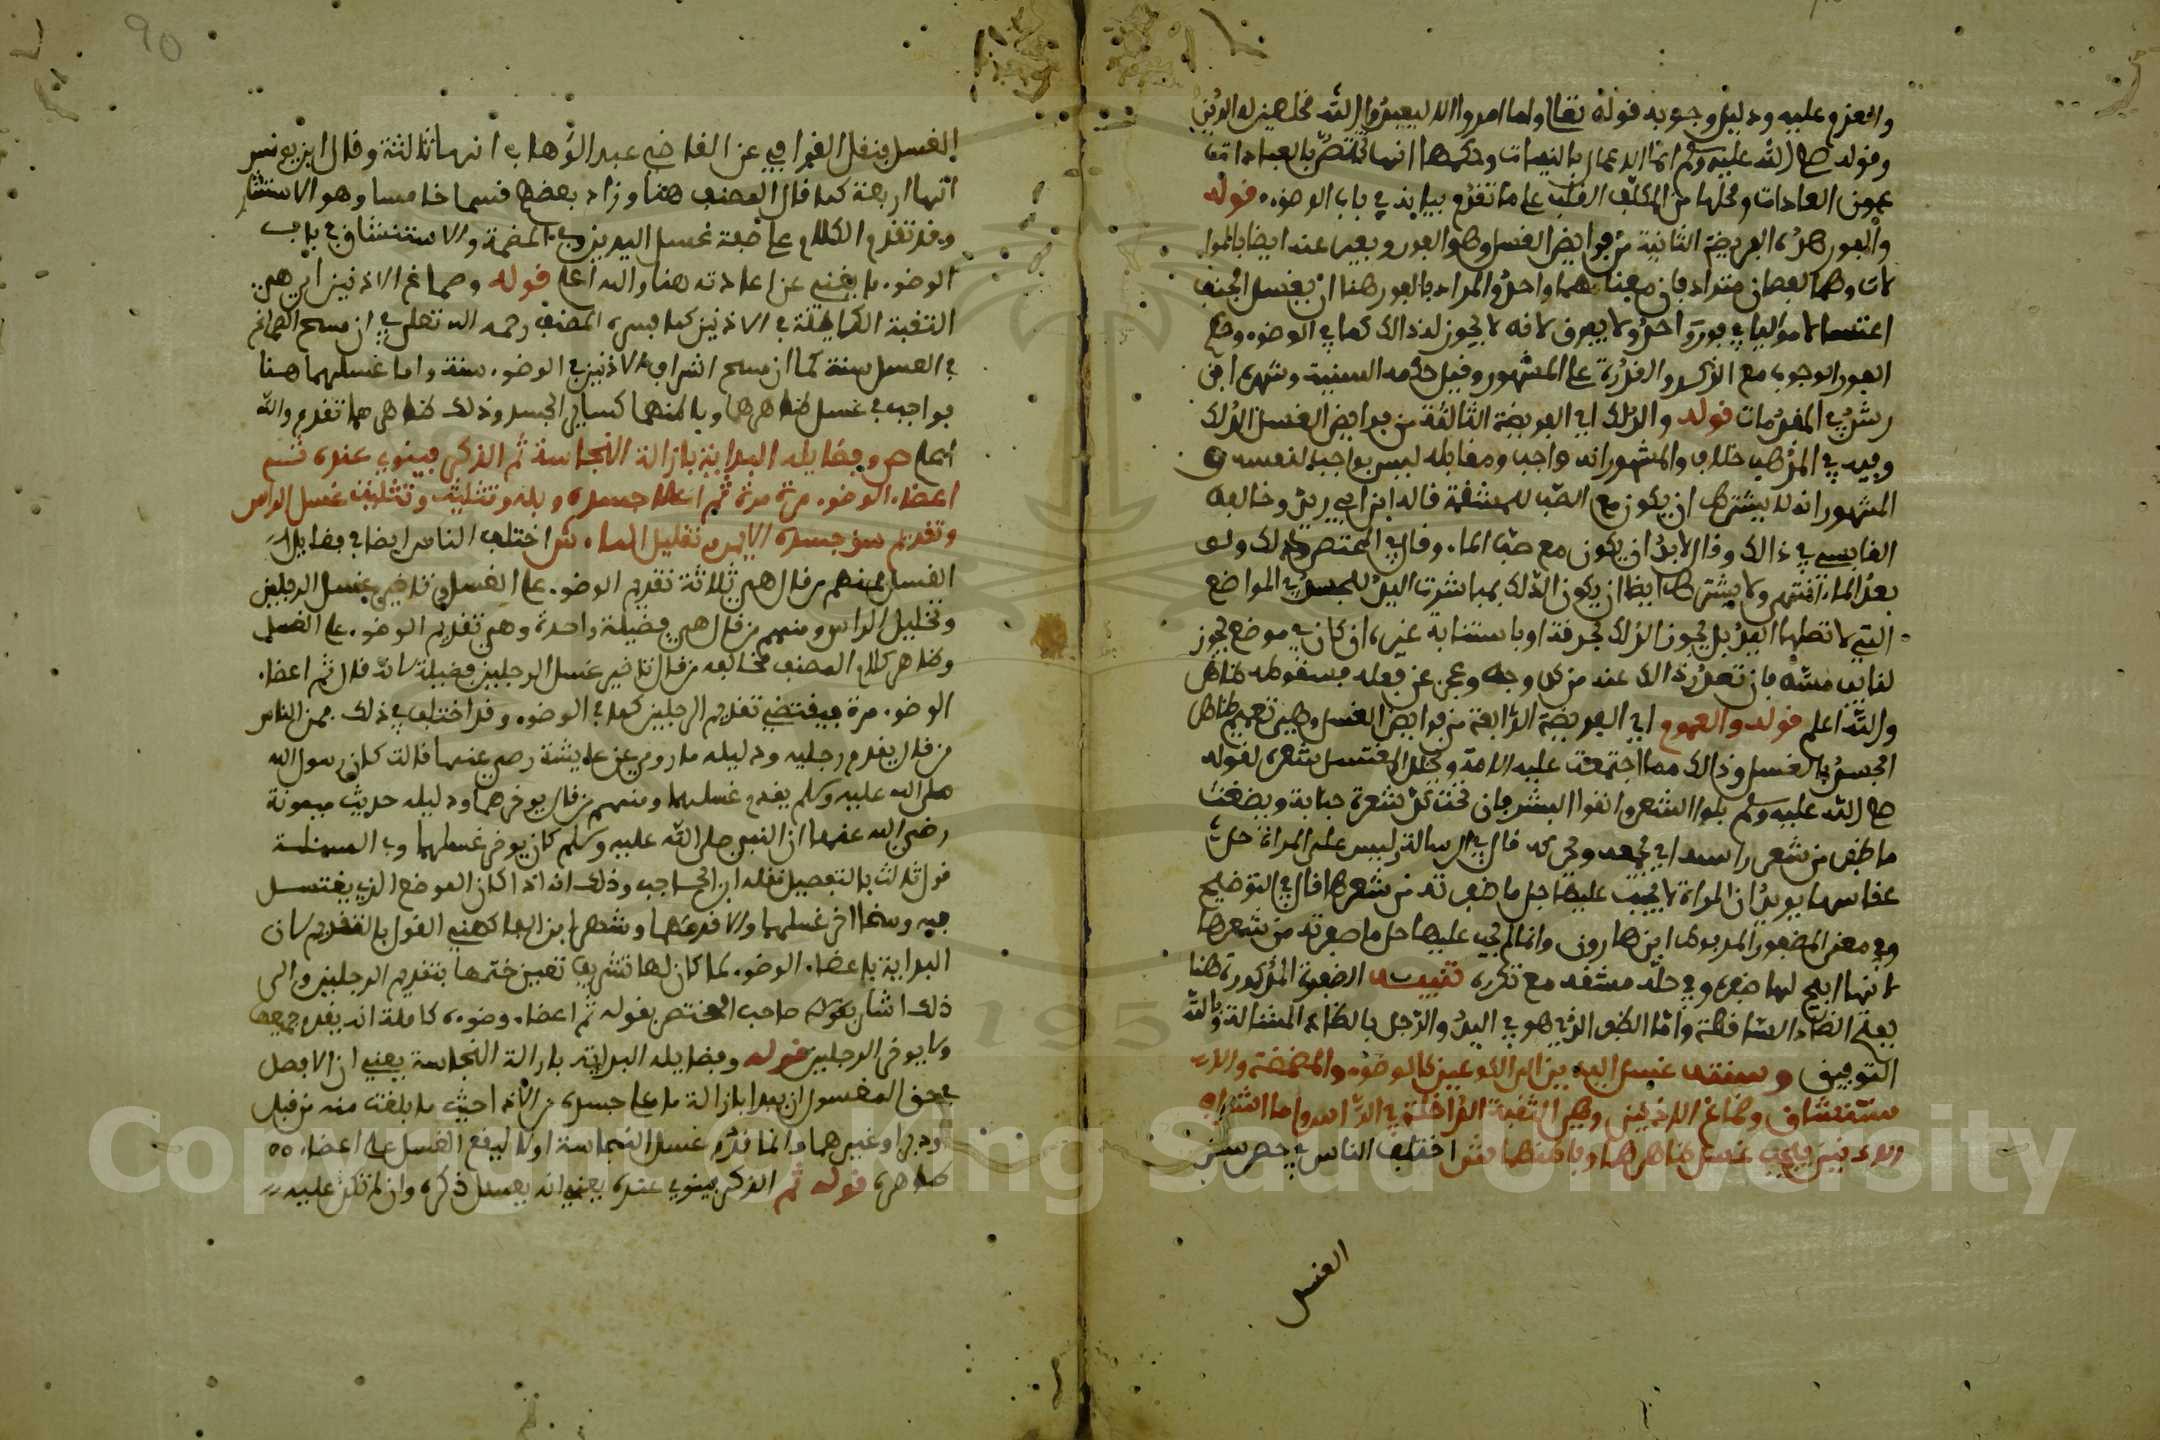 والعزم عليه ودليل وجوبه قوله تعالى وما امروا الا ليعبدوا الله مخلصين له الدين
وقوله صلى الله عليه وسلم انما الاعمال بالنيات وحكمها انها تختص بالعبادات
دون العادات ومحلها من المكلف القلب على ما تقدم بيانه في باب الوضوء قوله
والفور هذه الفريضة الثانية من فرايض الغسل وهو الفور ويعبر عنه ايضا بالموا
لات وهما لفظان مترادفان معناهما واحد والمراد بالفور هنا ان يغسل الجنب
اغتسالا مواليا في فور واحد ولا يفرق لانه لا يجوز له ذالك كما في الوضوء وحكم
الفور الوجوب مع الذكر والقدرة على المشهور وقيل حكمه السنية وشهره ابن
رشد في المقدمات قوله والدلك اي الفريضة الثالثة من فرايض الغسل الدلك
وفيه في المذهب خلاف والمشهور انه واجب ومقابله ليس بواجب لنفسه
المشهور انه لا يشترط ان يكون مع الصب للمشقة قاله ابن ابي زيد وخالفه
القابسي في ذالك وقال لابد ان يكون مع صب الماء وقال في المختصر ودلك ولو
بعد الماء انتهى ولا يشترط ايضا ان يكون الدلك بمباشرت اليد للجسد في المواضع
التي لا تصلها اليد بل يجوز الدلك بخرقة او باستنابة غيره ان كان في موضع يجوز
لنايب مسه فان تعذر ذالك عنه من كل وجه وعجز عن فعله فسقوطه ظاهر
والله اعلم قوله والعموم اي الفريضة الرابعة من فرايض الغسل وهي تعميم ظاهر
الجسد بالغسل وذالك مما اجتمعت عليه الامة ويخلل المغتسل شعره لقوله
صلى الله عليه وسلم بلوا الشعر وانقوا البشر فان تحت كل شعرة جنابة ويضغث
ما ظفر من شعر راسه اي يجمعه ويحركه قال في الرسالة وليس على المراة حل
عقاصها يريد ان المراة لا يجب عليها حل ما ضفرته من شعرها قال في التوضيح
وفي معنى المضفور المربوط ابن هارون وانما لم يجب عليها حل ما ضفرته من شعرها
لانها ابيح لها ضفره وفي حله مشقة مع تكرره تنبيه الضفرة المذكورة هنا
بعد الضاد الساقطة واما الظفر الذي هو في اليد والرجل بالظاء المشالة وبالله
التوفيق وسننه غسل اليدين الى الكوعين كالوضوء والمضمضة والا
ستنشاق وصماغ الاذنين وهي الثقبة الداخلة في الراس واما اشراف
الاذنين فيجب غسل ظاهرهما وباطنهما ش اختلف الناس في حصر سنن
الغسل
الغسل فنقل القرافي عن القاضي عبد الوهاب انها ثالثة وقال ابن يونس
انها اربعة كما قال المصنف هنا وزاد بعضهم قسما خامسا وهو الاستنثار
وقد تقدم الكلام على صفة غسل اليدين وفي المضمضة والاستنشاق في باب
الوضوء ما يغني عن اعادته هنا والله اعلم قوله وصماغ الاذنين اي هي
الثقبة الداخلة في الاذنين كما فسره المصنف رحمه الله تعالى في ان مسح الصماغ
في الغسل سنة كما ان مسح اشراف الاذنين في الوضوء سنة واما غسلهما هنا
فواجب في غسل ظاهرهما وباطنهما كساير الجسد وذلك ظاهر مما تقدم والله
اعلم ص وفضايله البداية بازالة النجاسة ثم الذكر فينوي عنده ثم
اعضاء الوضوء مرة مرة ثم اعلا جسده وبله وتثليث وتثليث غسل الراس
وتقديم شق جسده الايمن وتقليل الماء ش اختلف الناس ايضا في فضايل
الغسل فمنهم من قال هي ثلاثة تقديم الوضوء على الغسل وتاخير غسل الرجلين
وتخليل الراس ومنهم من قال هي فضيلة واحدة وهي تقديم الوضوء على الغسل
وظاهر كلام المصنف مخالفه من قال تاخير غسل الرجلين فضيلة لانه قال ثم اعضاء
الوضوء مرة فيقتضي تقديم الرجلين كما في الوضوء وقد اختلف في ذلك فمن الناس
من قال يقدم رجليه ودليله ما روي عن عايشة رضي عنها قالت كان رسول الله
صلى الله عليه وسلم يقدم غسلهما ومنهم من قال يوخرهما ودليله حديث ميمونة
رضي الله عنها ان النبي صلى الله عليه وسلم كان يوخر غسلهما وفي المسئلة
قول ثالث بالتفصيل نقله ابن الحاجب وذلك انه اذا كان الموضع الذي يغتسل
فيه وسخا اخر غسلهما والا قدمهما وشهر ابن الفاكهني القول بالتقديم لان
البداية باعضاء الوضوء لما كان لها تشريف تعين ختمها بتقديم الرجلين والى
ذلك اشار بقوله صاحب المختصر بقوله ثم اعضاء وضوءه كاملة انه يقدم جميعها
ولا يوخر الرجلين قوله وفضايله البداية بازالة النجاسة يعني ان الافضل
في حق المغسول ان يبدا بازالة ما على جسده من الاذى حيث ما بلغت منه من قبل
ودبر او غيرهما وانما قدم غسل النجاسة اولا ليقع الغسل على اعضاء
طاهرة قوله ثم الذكر فينوي عنده يعني انه يغسل ذكره وان لم تكن عليه